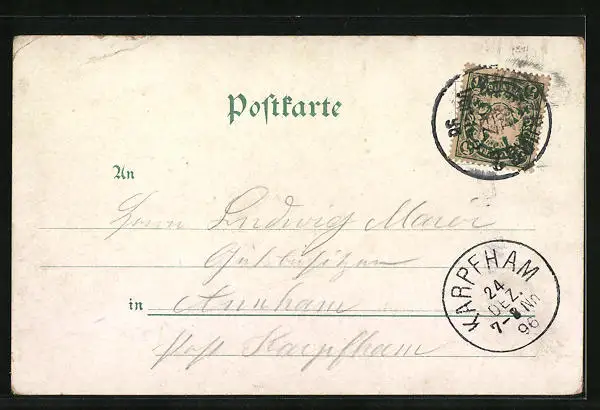 Postkarte
An
Herrn Ludwig Maier
Gutsbesitzer
in Aunham
Post Karpfham
KARPFHAM
24
DEZ.
7-8 Nm
96